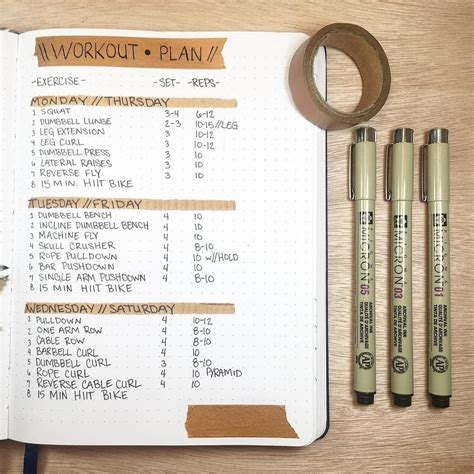 // WORKOUT • PLAN //
-EXERCISE- -SET- -REPS-
MONDAY // THURSDAY
1 SQUAT 3-4 6-12
2 DUMBBELL LUNGE 2-3 10-15 // LEG
3 LEG EXTENSION 3 10
4 LEG CURL 3 10
5 DUMBBELL PRESS 3 10
6 LATERAL RAISES 3 10
7 REVERSE FLY 3 10
8 15 MIN. HIIT BIKE
TUESDAY // FRIDAY
1 DUMBBELL BENCH 4 10
2 INCLINE DUMBBELL BENCH 4 10
3 MACHINE FLY 4 10
4 SKULL CRUSHER 4 8-10
5 ROPE PULLDOWN 4 10 w//HOLD
6 BAR PUSHDOWN 4 10
7 SINGLE ARM PUSHDOWN 4 8-10
8 15 MIN. HIIT BIKE
WEDNESDAY // SATURDAY
1 PULLDOWN 4 10-12
2 ONE ARM ROW 4 10
3 CABLE ROW 4 10
4 BARBELL CURL 4 10
5 DUMBBELL CURL 3 8-10
6 ROPE CURL 4 PYRAMID
7 REVERSE CABLE CURL 4 10
8 15 MIN. HIIT BIKE
MICRON 05
ARCHIVAL INK
QUALITÉ D'ARCHIVAGE
TINTA DE ARCHIVO
AP
MICRON 03
ARCHIVAL INK
QUALITÉ D'ARCHIVAGE
TINTA DE ARCHIVO
AP
MICRON 01
ARCHIVAL INK
QUALITÉ D'ARCHIVAGE
TINTA DE ARCHIVO
AP